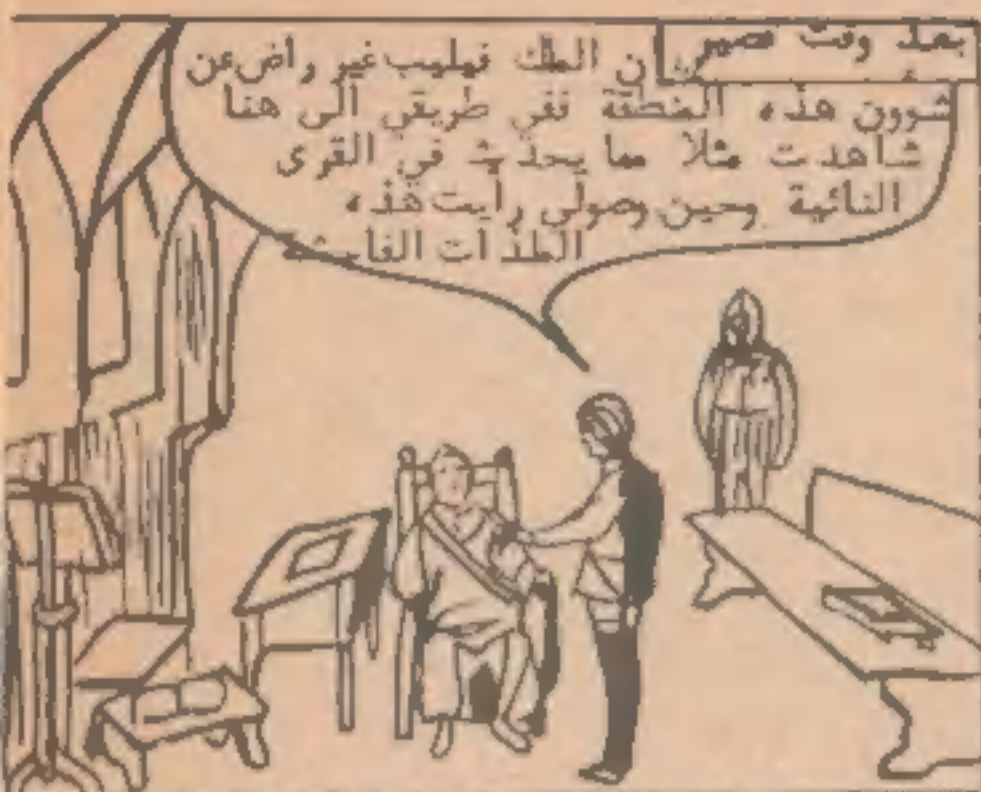 بعد وقت قصير
ان الملك فيليب غير راض عن
شوون هذه المنطقة ففي طريقي الى هنا
شاهدت مثلا ما يحدث في القرى
النائية وحين وصولي رأيت هذه
الملذات